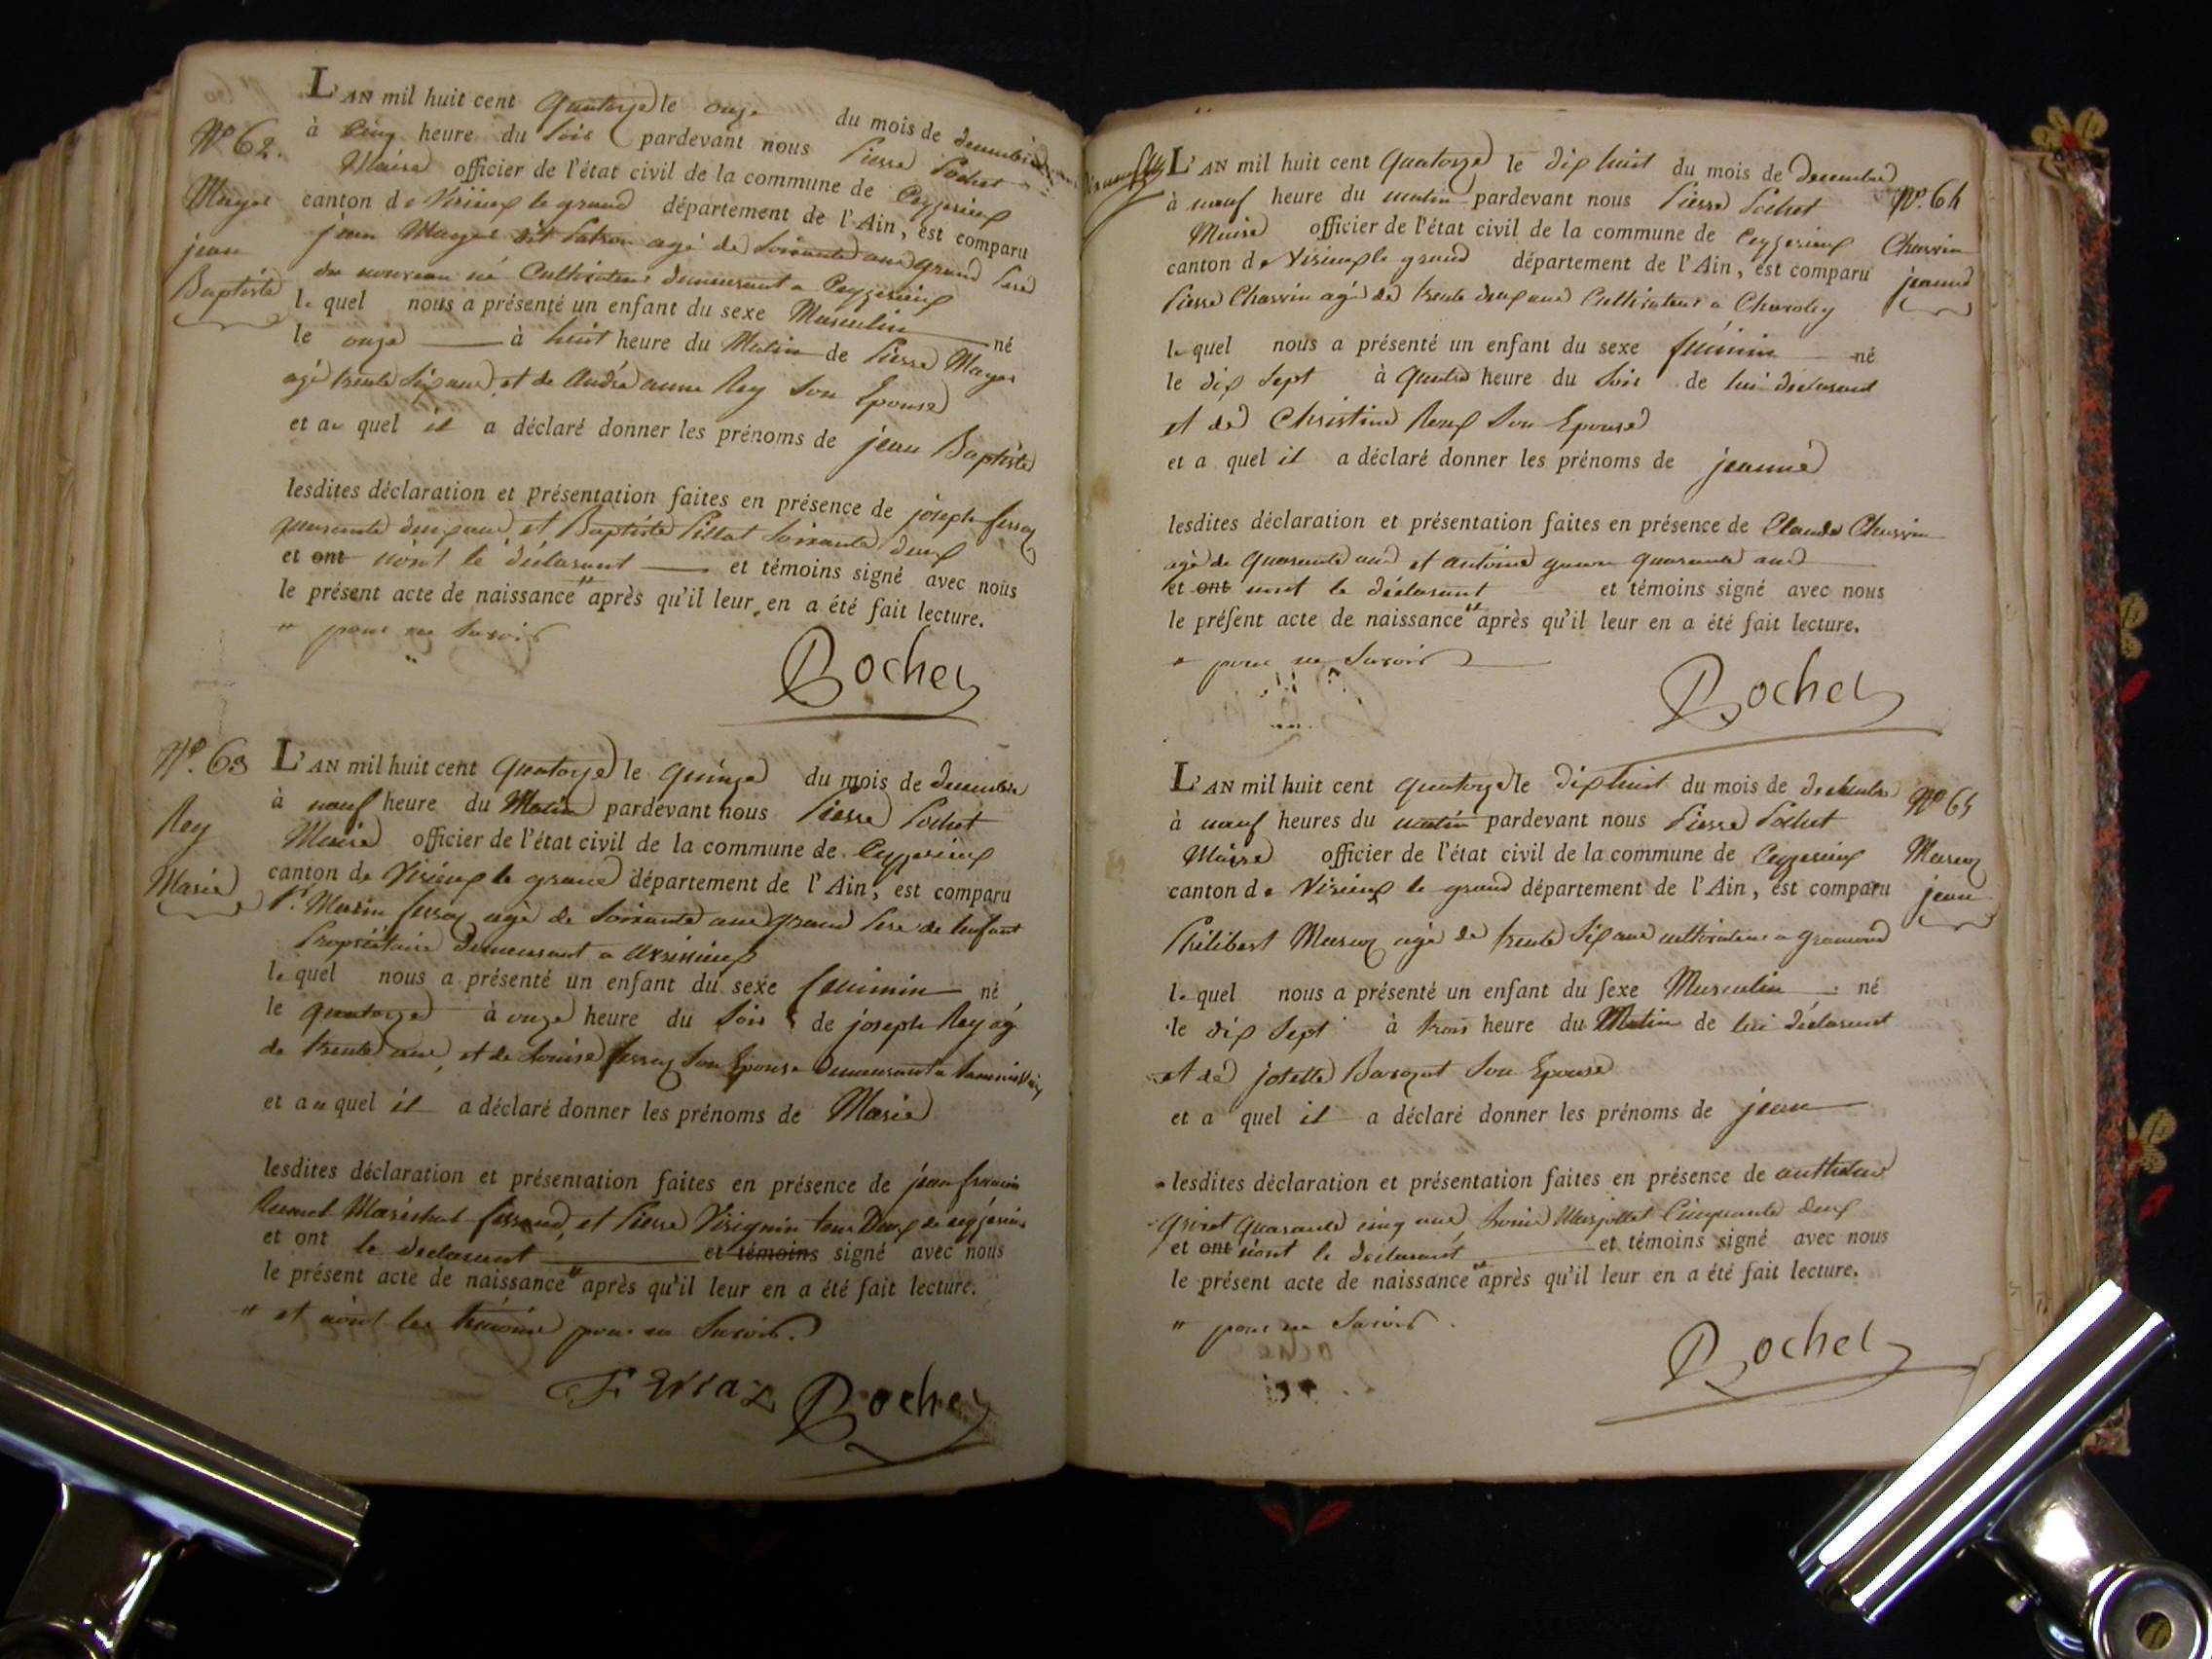 N° 62.
Mayet
jean
Baptiste
L'AN mil huit cent quatorze le onze du mois de decembre
à Cinq heure du Soir pardevant nous Pierre Pochet
Maire officier de l'état civil de la commune de Ceyzerieux
canton de Virieux le grand département de l'Ain, est comparu
jean Mayet dit Patron agé de Soixante ans grand Pere
du nouveau né Cultivateur demeurant a Ceyzerieux
le quel nous a présenté un enfant du sexe Masculin né
le onze à huit heure du Matin de Pierre Mayet
agé trente Six ans, et de Andrée anne Rey Son Epouse
et au quel il a déclaré donner les prénoms de jean Baptiste
lesdites déclaration et présentation faites en présence de joseph ferraz
quarante deux ans, et Baptiste Pillat Soixante deux
et ont n'ont le déclarant et témoins signé avec nous
le présent acte de naissance " après qu'il leur en a été fait lecture.
" pour ne Savoir
Pochet
N° 63
Rey
Marie
L'AN mil huit cent quatorze le quinze du mois de decembre
à neuf heure du Matin pardevant nous Pierre Pochet
Maire officier de l'état civil de la commune de Ceyzerieux
canton de Virieux le grand département de l'Ain, est comparu
Sr. Marin ferraz agé de Soixante ans grand Pere de l'enfant
Propriétaire demeurant a
le quel nous a présenté un enfant du sexe feminin né
le quatorze à onze heure du Soir de joseph Rey ag
de trente ans, et de Louise ferraz Son Epouse demeurant a
et au quel il a déclaré donner les prénoms de Marie
lesdites déclaration et présentation faites en présence de jean francois
Maréchal ferrand, et Pierre Virignin tous Deux de ceyzerieux
et ont le declarant et témoins signé avec nous
le présent acte de naissance " après qu'il leur en a été fait lecture.
" et n'ont les témoins pour ne Savoir.
Ferraz Pochet
L'AN mil huit cent quatorze le dix huit du mois de decembre
à neuf heure du matin pardevant nous Pierre Pochet
Maire officier de l'état civil de la commune de Ceyzerieux
canton de Virieux le grand département de l'Ain, est comparu
Pierre Charvin agé de trente deux ans Cultivateur a Chavoley
le quel nous a présenté un enfant du sexe féminin né
le dix Sept à quatre heure du Soir de lui declarant
et de Christine Son Epouse
et a quel il a déclaré donner les prénoms de jeanne
lesdites déclaration et présentation faites en présence de Claude Charvin
agé de quarante ans et antoine quarante ans
et ont n'ont le déclarant et témoins signé avec nous
le préſent acte de naissance " après qu'il leur en a été fait lecture.
" pour ne Savoir
Pochet
N°. 64
Charvin
jeanne
L'AN mil huit cent quatorze le dix huit du mois de decembre
à neuf heures du matin pardevant nous Pierre Pochet
Maire officier de l'état civil de la commune de Ceyzerieux
canton de Virieux le grand département de l'Ain, est comparu
Philibert agé de trente Six ans cultivateur a
le quel nous a présenté un enfant du ſexe Masculin né
le dix Sept à trois heure du Matin de lui déclarant
et de josette Son Epouse
et a quel il a déclaré donner les prénoms de jean
lesdites déclaration et présentation faites en présence de anthelme
quarante cinq ans, Cinquante deux
et ont n'ont le declarant et témoins signé avec nous
le présent acte de naissance " après qu'il leur en a été fait lecture.
" pour ne Savoir.
Pochet
N° 65
jean